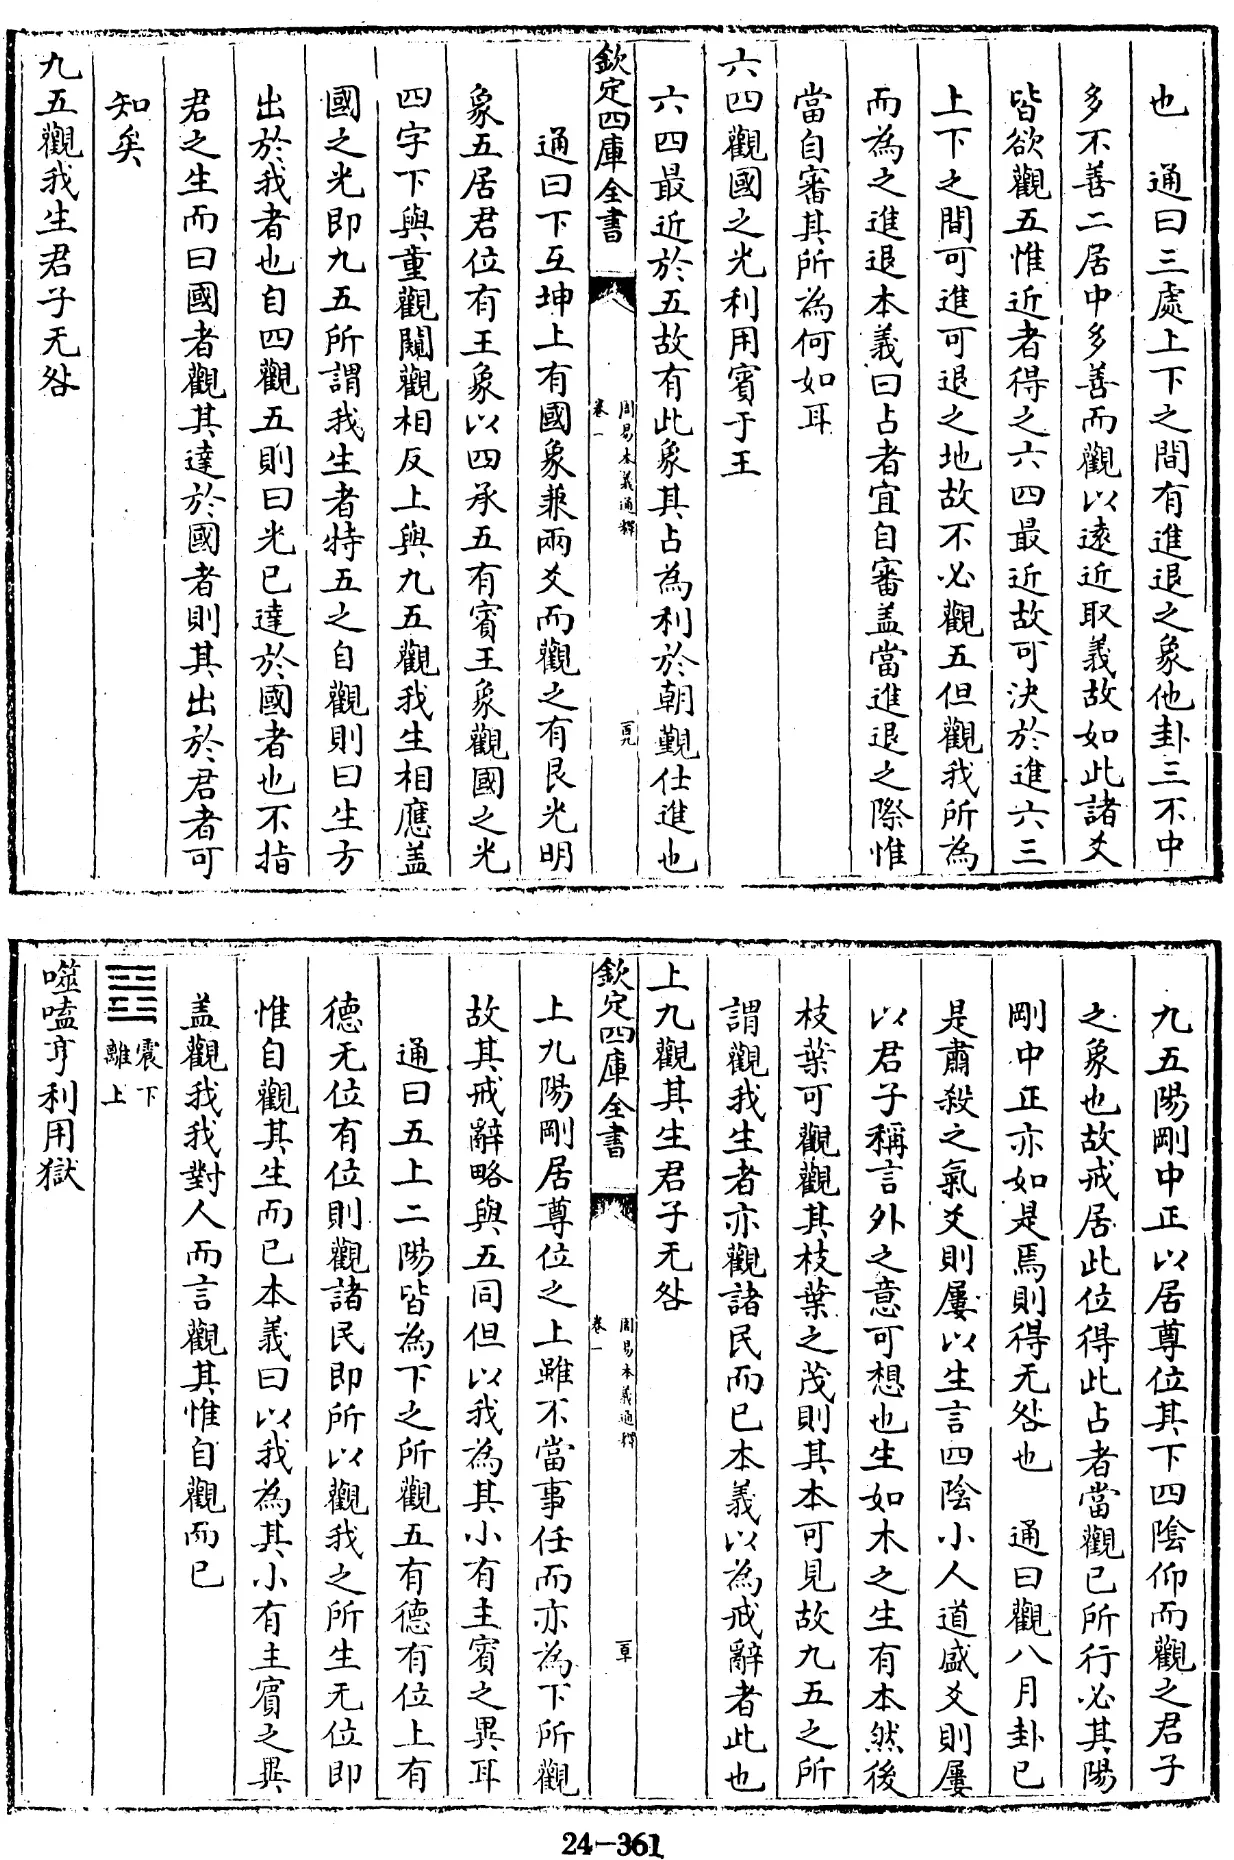 也　通曰三處上下之間有進退之象他卦三不中
多不善二居中多善而觀以遠近取義故如此諸爻
皆欲觀五惟近者得之六四最近故可決於進六三
上下之間可進可退之地故不必觀五但觀我所為
而為之進退本義曰占者宜自審盖當進退之際惟
當自審其所為何如耳
六四觀國之光利用賓于王
六四最近於五故有此象其占為利於朝覲仕進也
欽定四庫全書　周易本義通釋　卷一
通曰下互坤上有國象兼兩爻而觀之有艮光明
象五居君位有王象以四承五有賓王象觀國之光
四字下與童觀闚觀相反上與九五觀我生相應盖
國之光即九五所謂我生者特五之自觀則曰生方
出於我者也自四觀五則曰光已達於國者也不指
君之生而曰國者觀其達於國者則其出於君者可
知矣
九五觀我生君子无咎
九五陽剛中正以居尊位其下四陰仰而觀之君子
之象也故戒居此位得此占者當觀已所行必其陽
剛中正亦如是焉則得无咎也　通曰觀八月卦已
是肅殺之氣爻則屢以生言四陰小人道盛爻則屢
以君子稱言外之意可想也生如木之生有本然後
枝葉可觀觀其枝葉之茂則其本可見故九五之所
謂觀我生者亦觀諸民而已本義以為戒辭者此也
上九觀其生君子无咎
欽定四庫全書　周易本義通釋　卷一
上九陽剛居尊位之上雖不當事任而亦為下所觀
故其戒辭略與五同但以我為其小有主賓之異耳
通曰五上二陽皆為下之所觀五有德有位上有
德无位有位則觀諸民即所以觀我之所生无位即
惟自觀其生而已本義曰以我為其小有主賓之異
盖觀我我對人而言觀其惟自觀而已
震下
離上
噬嗑亨利用獄
24-361